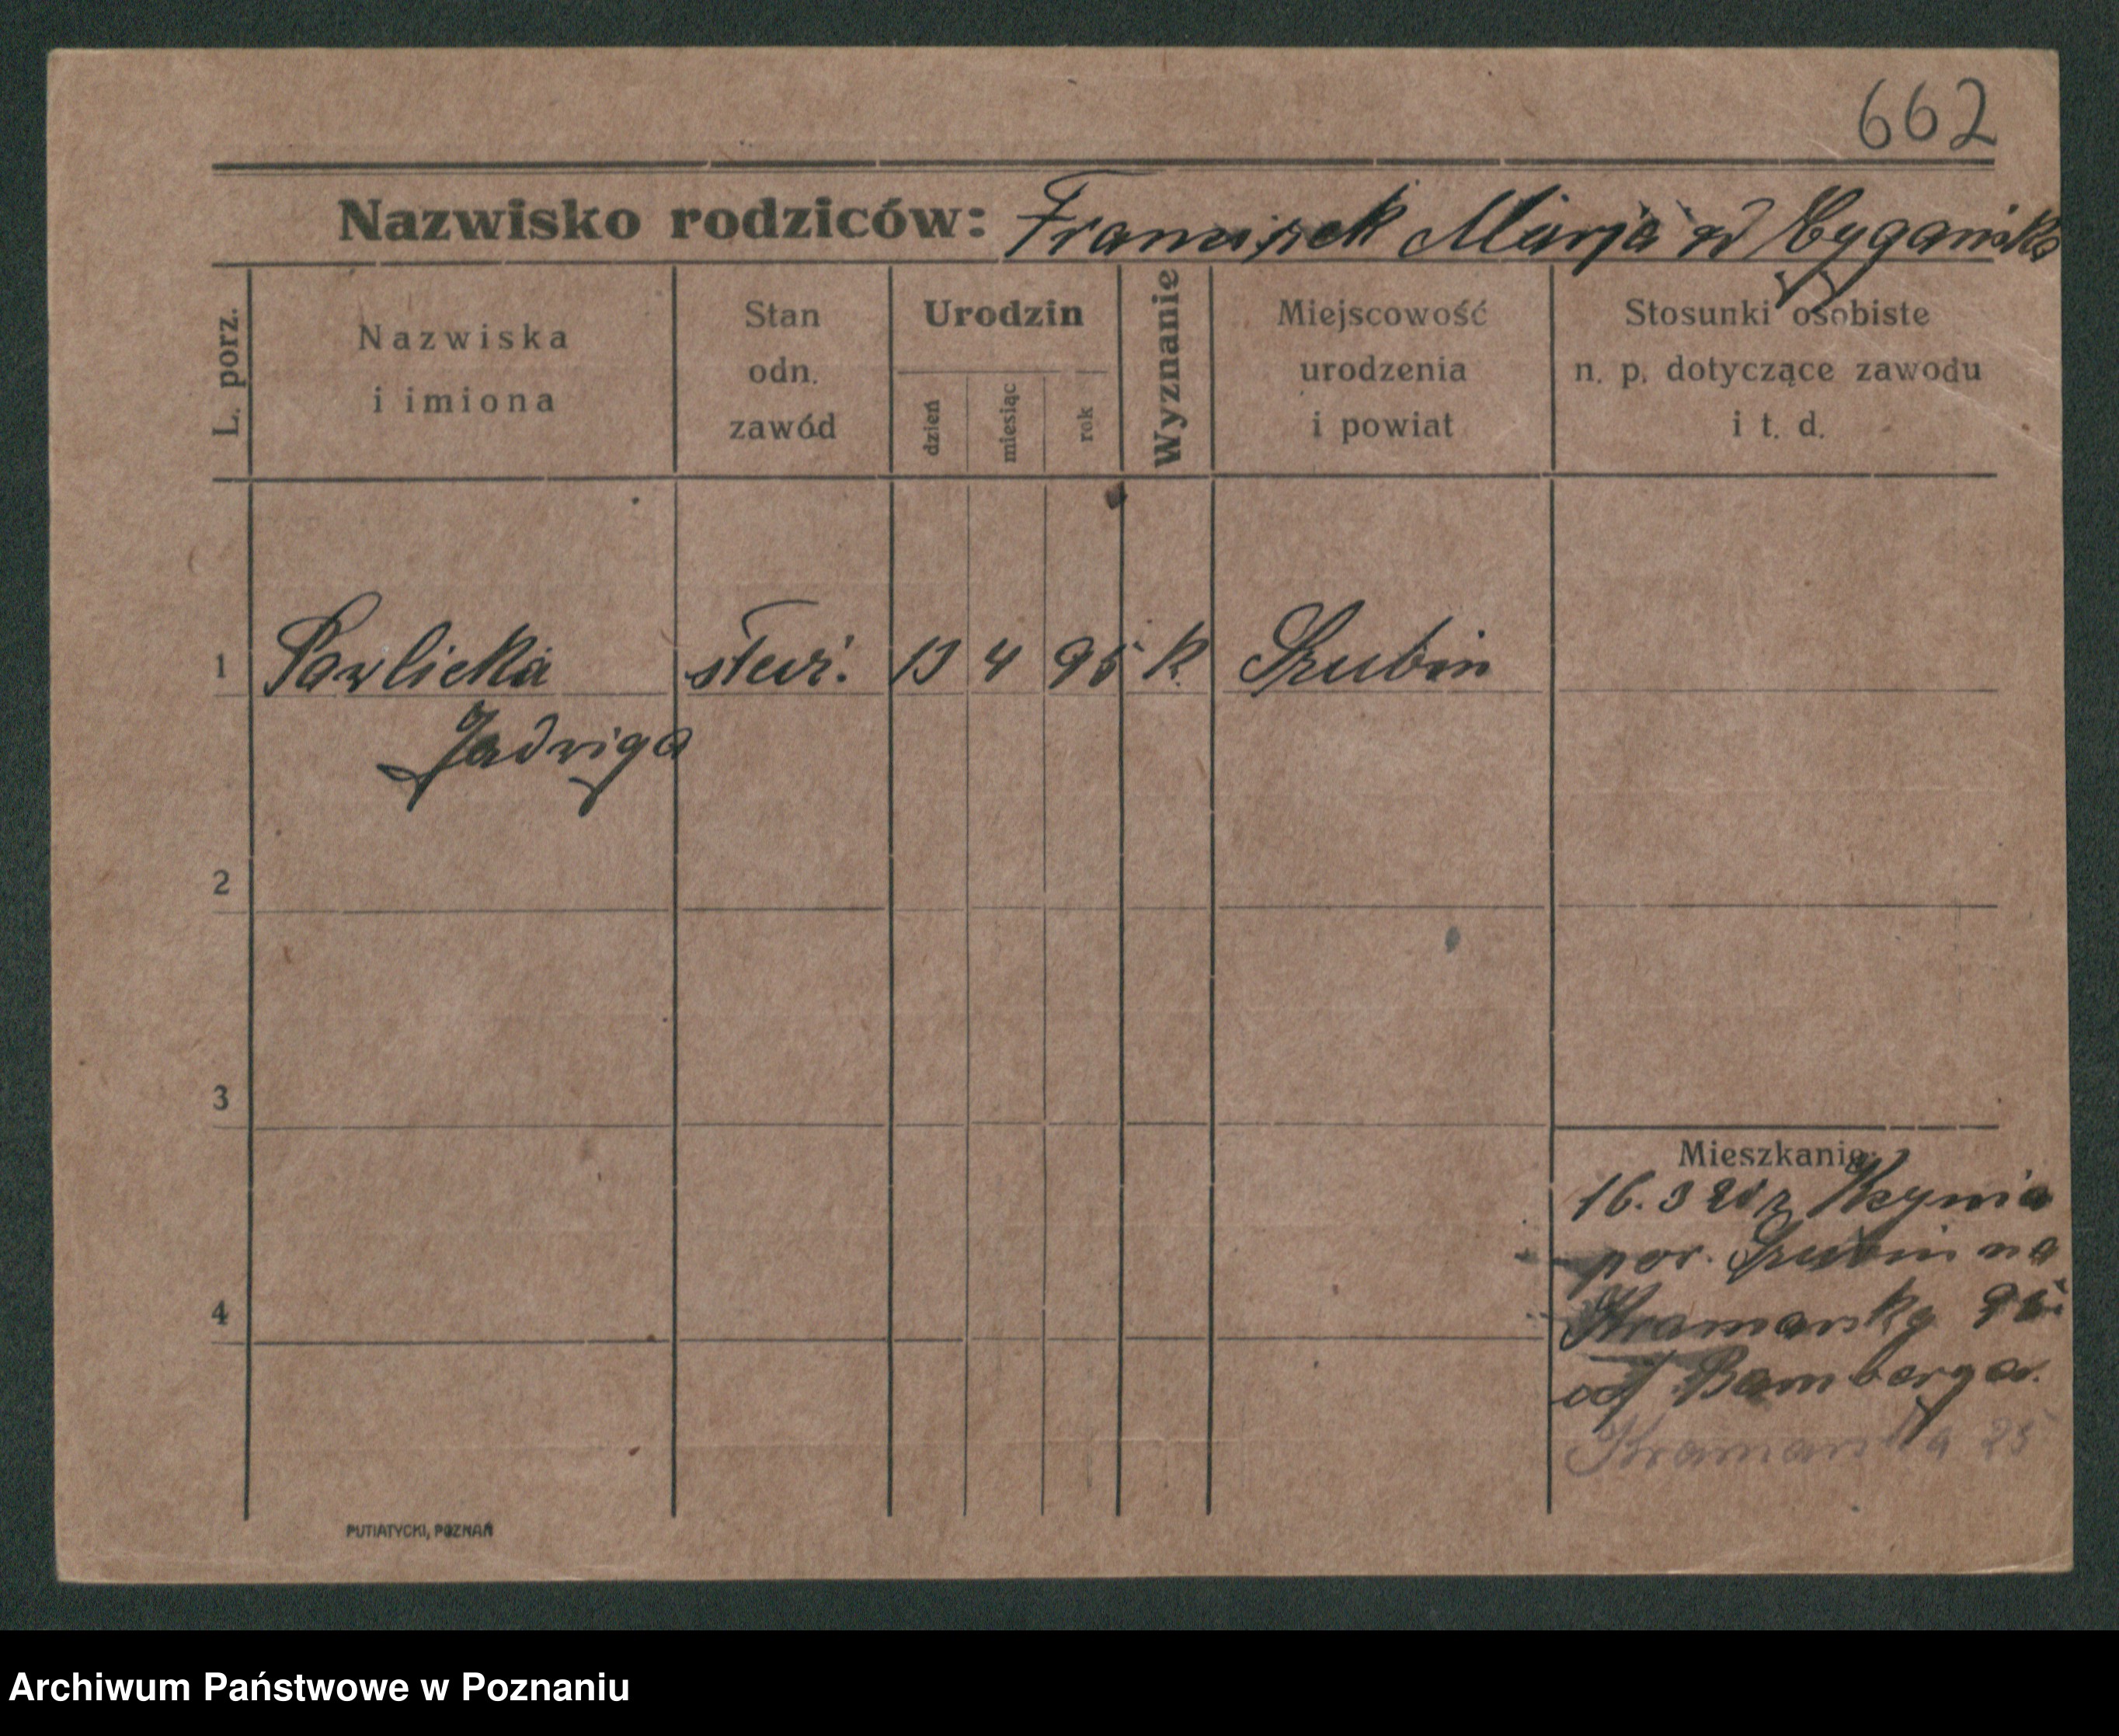 662
Nazwisko rodziców: Franciszek Marja zd Cygańska
L. porz.
Nazwiska
i imiona
Stan
odn.
zawód
Urodzin
dzień
miesiąc
rok
Wyznanie
Miejscowość
urodzenia
i powiat
Stosunki osobiste
n. p. dotyczące zawodu
i t. d.
1 Pawlicka służ. 13 4 95 k. Szubin
Jadwiga
2
3
4
Mieszkanie:
16. 3 21 z Kcynia
pow. Szubin na
Kramarską
od Bamberga.
Kramarska 25
PUTIATYCKI, POZNAŃ
Archiwum Państwowe w Poznaniu